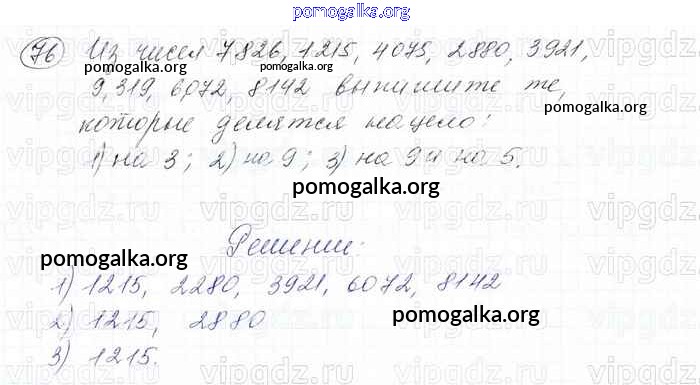 pomogalka.org
76 Из чисел 7826, 1215, 4075, 2880, 3921,
pomogalka.org pomogalka.org
9, 319, 6072, 8142 выпишите те,
pomogalka.org
которые делятся нацело:
1) на 3; 2) на 9; 3) на 9 и на 5.
pomogalka.org
Решение:
pomogalka.org
1) 1215, 2280, 3921, 6072, 8142
2) 1215, 2880
pomogalka.org
3) 1215.
vipgdz.ru